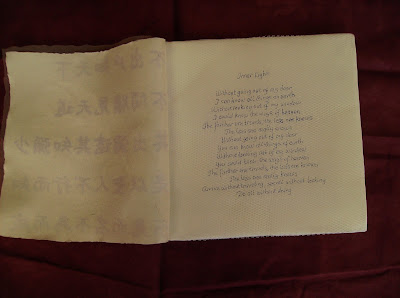 不出 天下
不 見天道
其出彌遠其知彌少
人不行而知
Inner Light
Without going out of my door
I can know all things on earth
Without looking out of my window
I could know the ways of heaven
The farther one travels, the less one knows
The less one really knows
Without going out of your door
You can know all things of earth
Without looking out of your window
you could know the ways of heaven
The farther one travels, the less one knows
The less one really knows
Arrive without traveling, see all without looking
Do all without doing